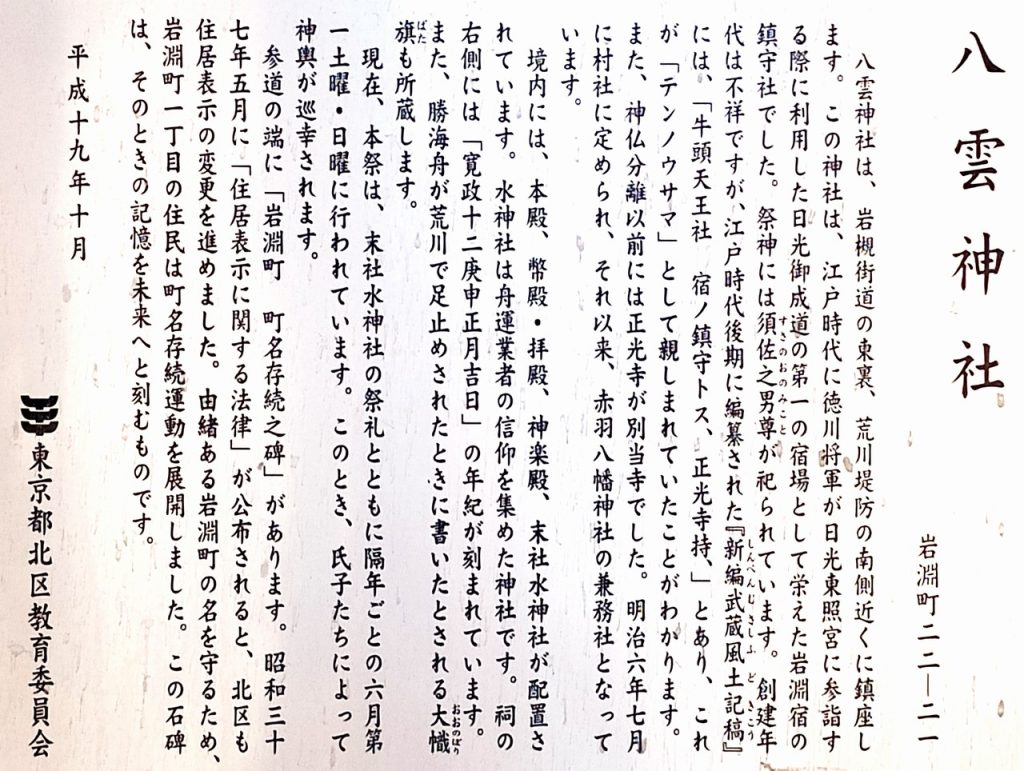 八雲神社
岩淵町二二―二一
八雲神社は、岩槻街道の東裏、荒川堤防の南側近くに鎮座し
ます。この神社は、江戸時代に徳川将軍が日光東照宮に参詣す
る際に利用した日光御成道の第一の宿場として栄えた岩淵宿の
鎮守社でした。祭神には須佐之男尊が祀られています。創建年
すさのおのみこと
代は不祥ですが、江戸時代後期に編纂された『新編武蔵風土記稿』
しんぺんむさしふどきこう
には、「牛頭天王社 宿ノ鎮守トス、正光寺持、」とあり、これ
が「テンノウサマ」として親しまれていたことがわかります。
また、神仏分離以前には正光寺が別当寺でした。明治六年七月
に村社に定められ、それ以来、赤羽八幡神社の兼務社となって
います。
境内には、本殿、幣殿・拝殿、神楽殿、末社水神社が配置さ
れています。水神社は舟運業者の信仰を集めた神社です。祠の
右側には「寛政十二庚申正月吉日」の年紀が刻まれています。
また、勝海舟が荒川で足止めされたときに書いたとされる大幟
おおのぼり
旗も所蔵します。
ばた
現在、本祭は、末社水神社の祭礼とともに隔年ごとの六月第
一土曜・日曜に行われています。このとき、氏子たちによって
神輿が巡幸されます。
参道の端に「岩淵町 町名存続之碑」があります。昭和三十
七年五月に「住居表示に関する法律」が公布されると、北区も
住居表示の変更を進めました。由緒ある岩淵町の名を守るため、
岩淵町一丁目の住民は町名存続運動を展開しました。この石碑
は、そのときの記憶を未来へと刻むものです。
平成十九年十月
東京都北区教育委員会